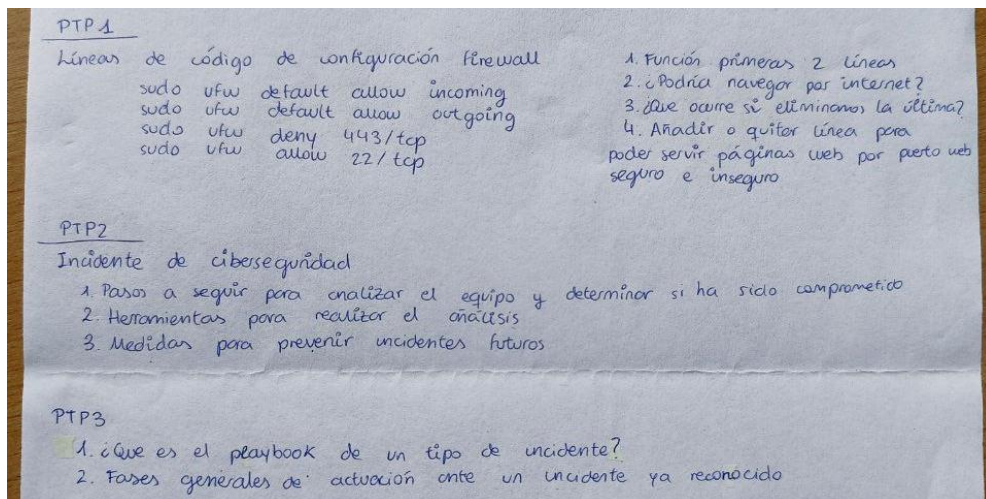 PTP1
Líneas de código de configuración firewall
sudo ufw default allow incoming
sudo ufw default allow outgoing
sudo ufw deny 443/tcp
sudo ufw allow 22/tcp
1. Función primeras 2 líneas
2. ¿Podría navegar por internet?
3. ¿Que ocurre si eliminamos la última?
4. Añadir o quitar línea para
poder servir páginas web por puerto web
seguro e inseguro
PTP2
Incidente de ciberseguridad
1. Pasos a seguir para analizar el equipo y determinar si ha sido comprometido
2. Herramientas para realizar el análisis
3. Medidas para prevenir incidentes futuros
PTP3
1. ¿Que es el playbook de un tipo de incidente?
2. Fases generales de actuación ante un incidente ya reconocido